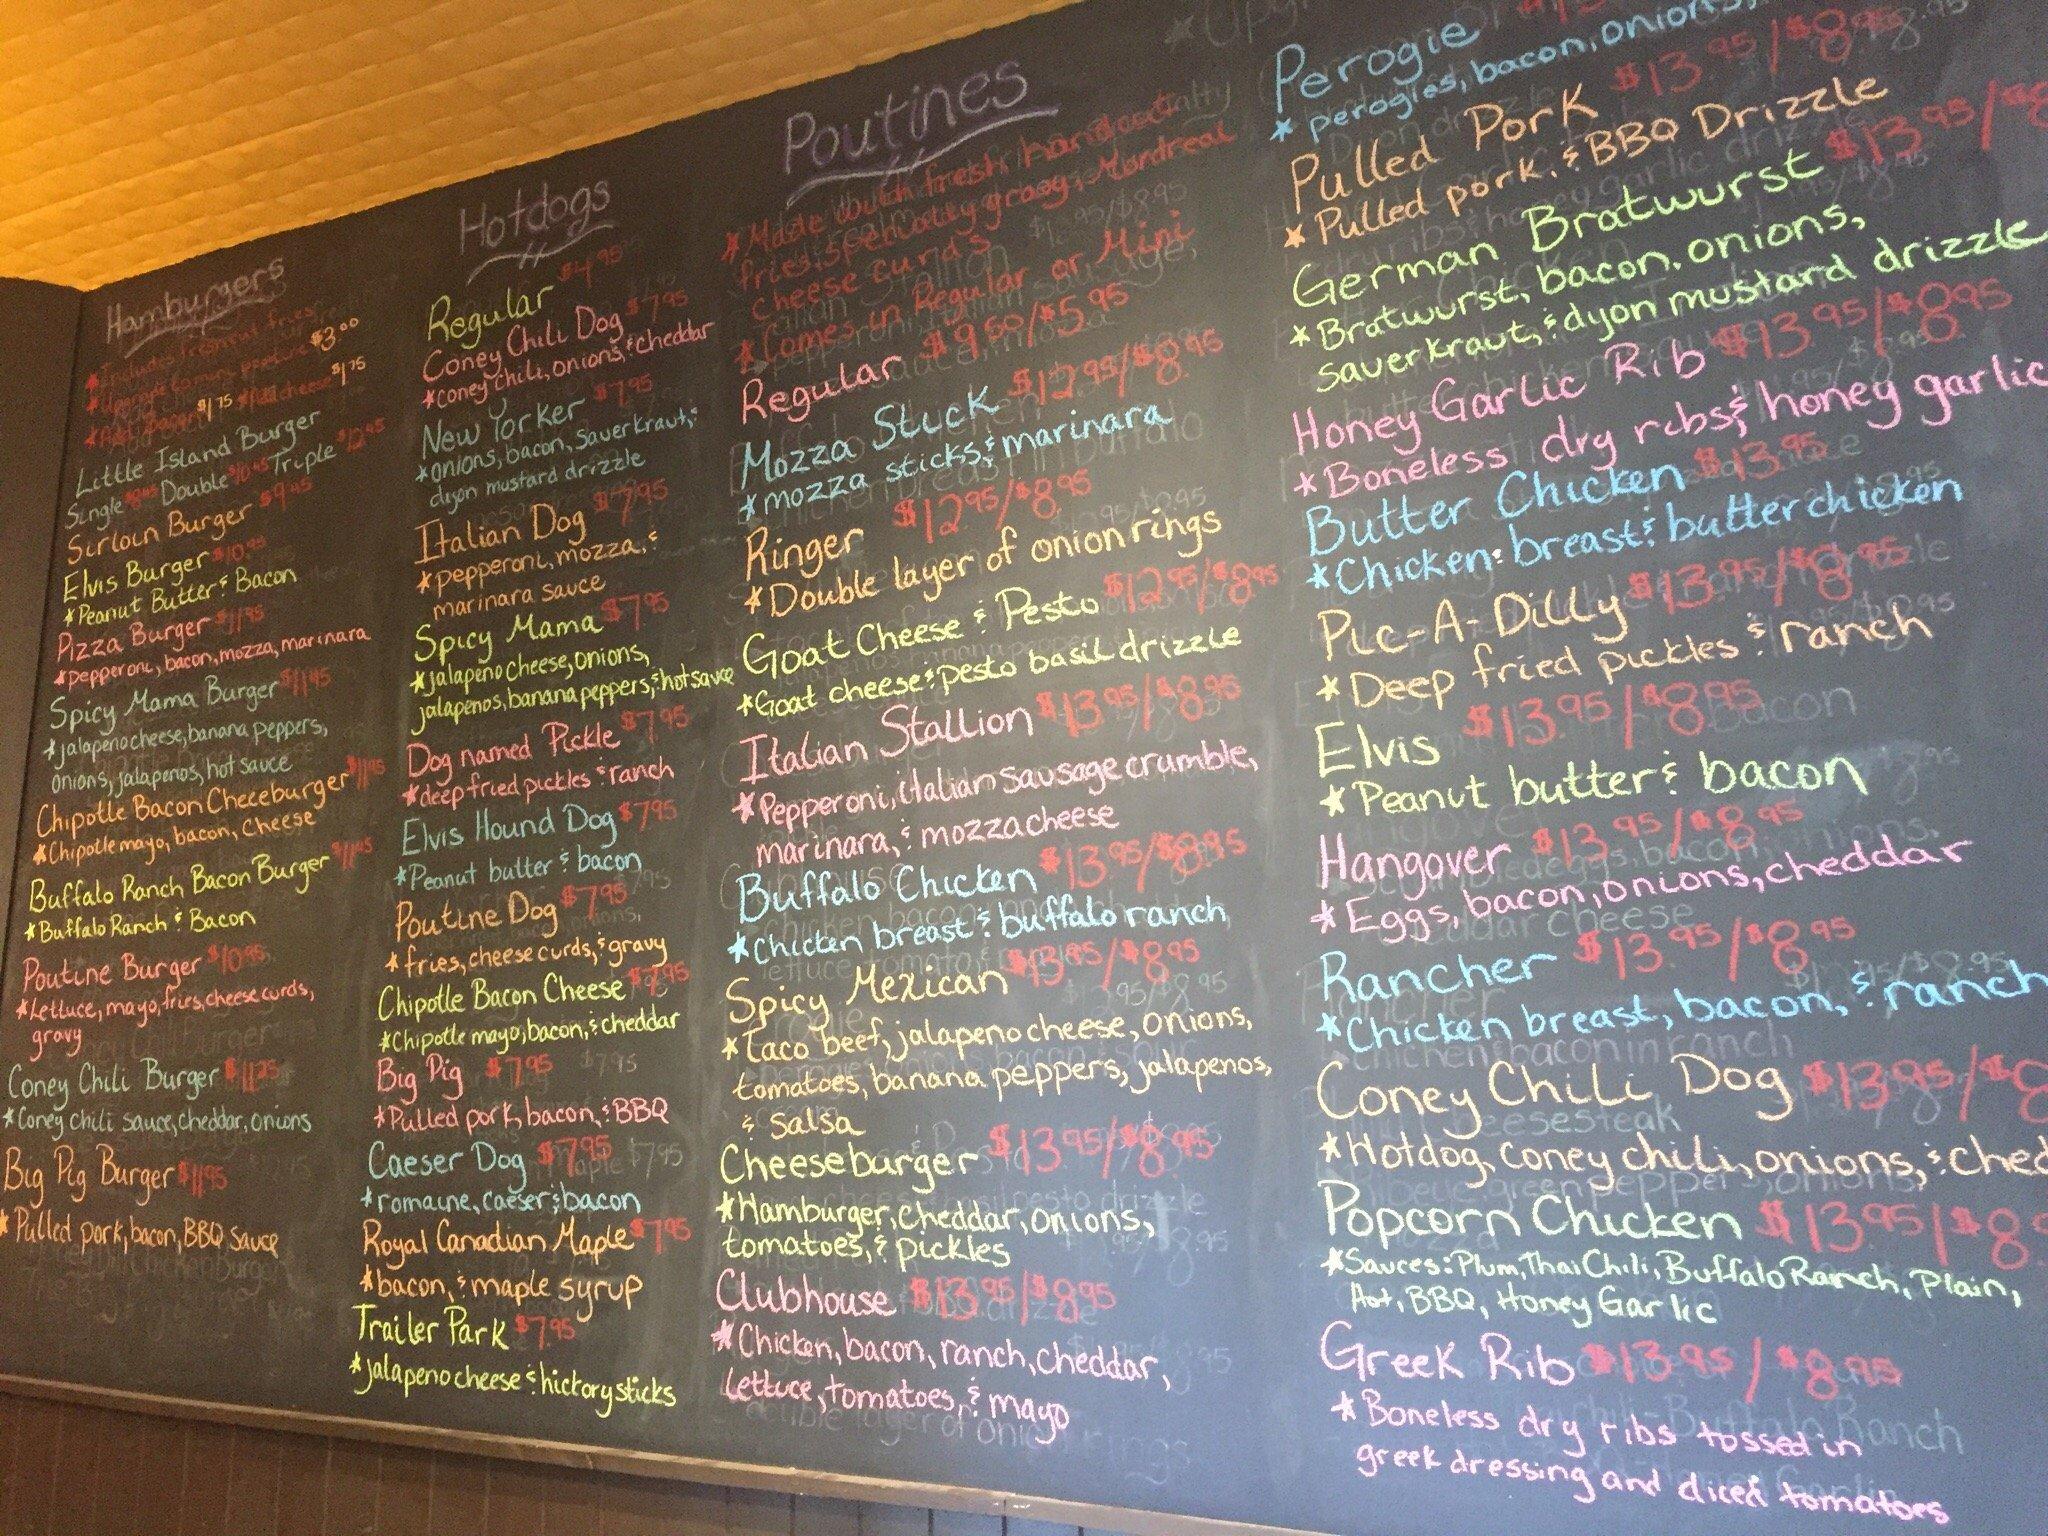 Hamburgers
*Includes fresh cut fries
*Upgrade to mini poutine $3.00
*Add bacon $1.75 *Add cheese $1.75
Little Island Burger
Single $8.45 Double $10.45 Triple $12.45
Sirloin Burger $9.45
Elvis Burger $10.95
*Peanut Butter & Bacon
Pizza Burger $11.95
*Pepperoni, bacon, mozza, marinara
Spicy Mama Burger $11.45
*jalapeno cheese, banana peppers,
onions, jalapenos, hot sauce
Chipotle Bacon Cheeeburger $11.95
*Chipotle mayo, bacon, cheese
Buffalo Ranch Bacon Burger $11.45
*Buffalo Ranch & Bacon
Poutine Burger $10.95
*Lettuce, mayo, fries, cheese curds,
gravy
Coney Chili Burger $11.25
*Coney chili sauce, cheddar, onions
Big Pig Burger $11.95
*Pulled pork, bacon, BBQ sauce
Hotdogs
Regular $4.95
Coney Chili Dog $7.95
*coney chili, onions, & cheddar
New Yorker $7.95
*onions, bacon, sauerkraut, &
dyon mustard drizzle
Italian Dog $7.95
*pepperoni, mozza, &
marinara sauce
Spicy Mama $7.95
*jalapeno cheese, onions,
jalapenos, banana peppers, & hot sauce
Dog named Pickle $7.95
*deep fried pickles & ranch
Elvis Hound Dog $7.95
*Peanut butter & bacon
Poutine Dog $7.95
*fries, cheese curds, & gravy
Chipotle Bacon Cheese $7.95
*Chipotle mayo, bacon, & cheddar
Big Pig $7.95
*Pulled pork, bacon, & BBQ
Caeser Dog $7.95
*romaine, caeser & bacon
Royal Canadian Maple $7.95
*bacon, & maple syrup
Trailer Park $7.95
*jalapeno cheese & hickory sticks
Poutines
*Made with fresh hand cut
fries, specialty gravy, Montreal
cheese curds
*Comes in Regular or Mini
Regular $9.50/$5.95
Mozza Stuck $12.95/$8.95
*mozza sticks & marinara
Ringer $12.95/$8.95
*Double layer of onion rings
Goat Cheese & Pesto $12.95/$8.95
*Goat cheese & pesto basil drizzle
Italian Stallion $13.95/$8.95
*Pepperoni, italian sausage crumble,
marinara, & mozza cheese
Buffalo Chicken $13.95/$8.95
*Chicken breast & buffalo ranch
Spicy Mexican $13.95/$8.95
*Taco beef, jalapeno cheese, onions,
tomatoes, banana peppers, jalapenos,
& Salsa
Cheeseburger $13.95/$8.95
*Hamburger, cheddar, onions,
tomatoes, & pickles
Clubhouse $13.95/$8.95
*Chicken, bacon, ranch, cheddar,
lettuce, tomatoes, & mayo
Perogie
*perogies, bacon, onions,
Pulled Pork $13.95/$8.95
*Pulled pork, & BBQ Drizzle
German Bratwurst $13.95/$8
*Bratwurst, bacon, onions,
sauerkraut, & dyon mustard drizzle
Honey Garlic Rib $13.95/$8.95
*Boneless dry ribs & honey garlic
Butter Chicken $13.95
*Chicken breast & butter chicken
Pic-A-Dilly $13.95/$8.95
*Deep fried pickles & ranch
Elvis $13.95/$8.95
*Peanut butter & bacon
Hangover $13.95/$8.95
*Eggs, bacon, onions, cheddar
Rancher $13.95/$8.95
*Chicken breast, bacon, & ranch
Coney Chili Dog $13.95/$8
*Hotdog, coney chili, onions, & ched
Popcorn Chicken $13.95/$8.9
*Sauces: Plum, Thai Chili, Buffalo Ranch, Plain,
Hot, BBQ, Honey Garlic
Greek Rib $13.95/$8.95
*Boneless dry ribs tossed in
greek dressing and diced tomatoes